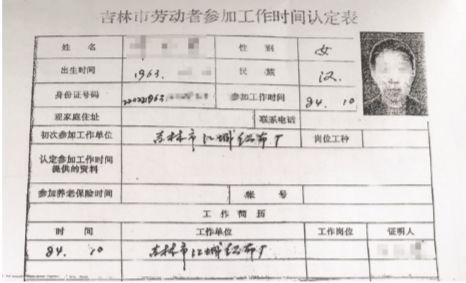 吉林市劳动者参加工作时间认定表
姓 名 性 别 女
出生时间 1963. 民 族 汉
身份证号码 参加工作时间 84. 10
现家庭住址 联系电话
初次参加工作单位 吉林市江城织布厂 岗位工种
认定参加工作时间
提供的资料
参加养老保险时间 帐 号
工 作 简 历
时 间 工作单位 工作岗位 证明人
84. 10 吉林市江城织布厂